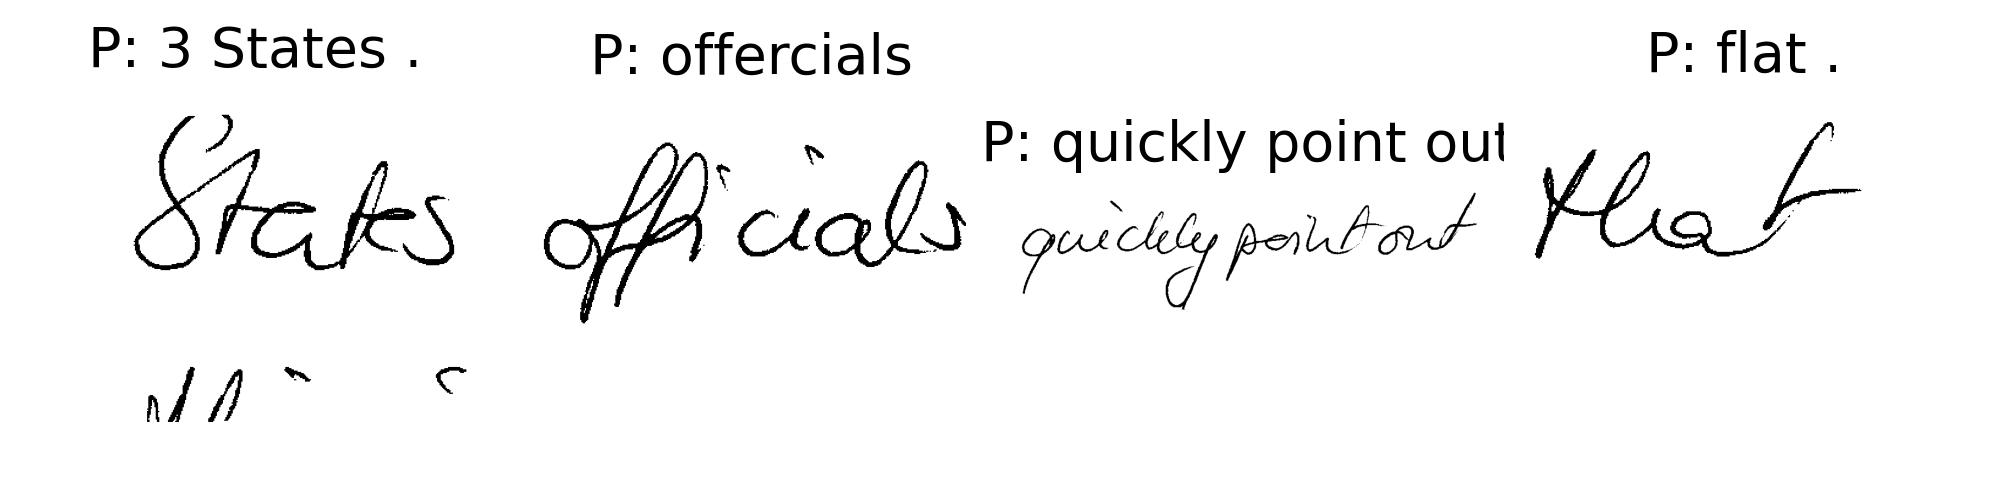 P: 3 States .
States
P: offercials
officials
P: quickly point out
quickly point out
P: flat .
that